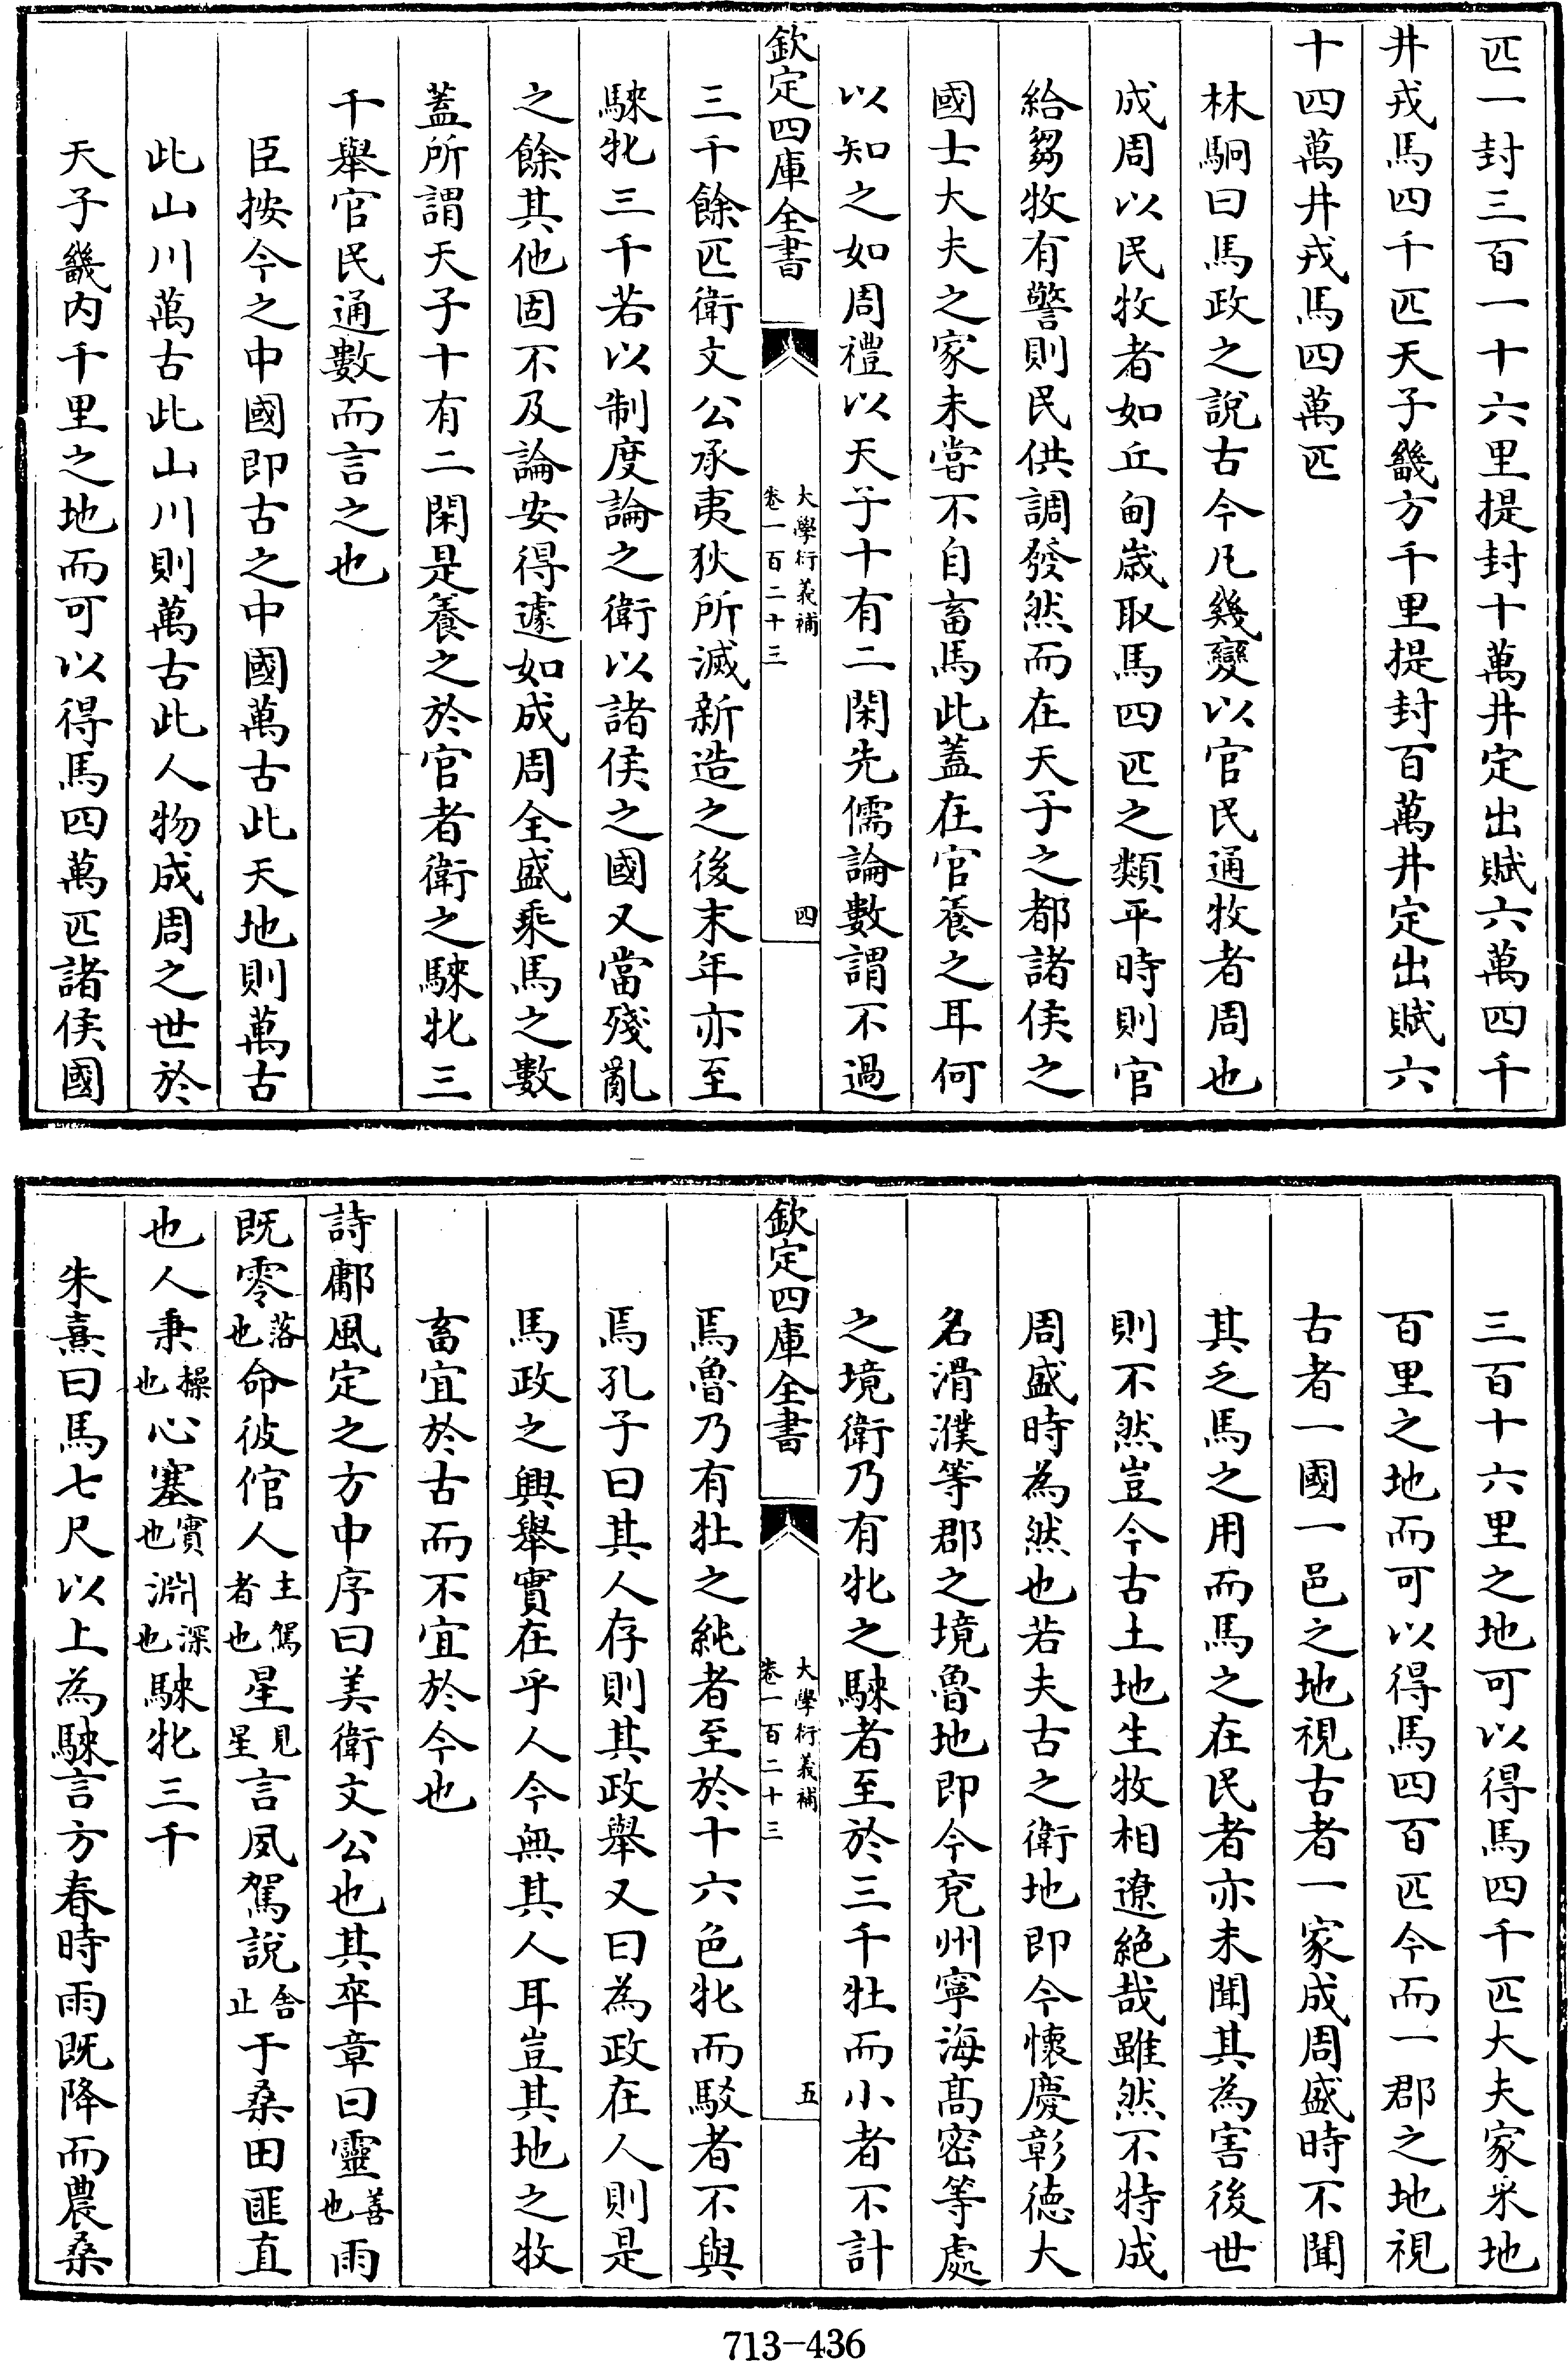 匹一封三百一十六里提封十萬井定出賦六萬四千
井戎馬四千匹天子畿方千里提封百萬井定出賦六
十四萬井戎馬四萬匹
林駉曰馬政之說古今凡幾變以官民通牧者周也
成周以民牧者如丘甸歲取馬四匹之類平時則官
給芻牧有警則民供調發然而在天子之都諸侯之
國士大夫之家未嘗不自畜馬此蓋在官養之耳何
以知之如周禮以天子十有二閑先儒論數謂不過
欽定四庫全書
大學衍義補
卷一百二十三
四
三千餘匹衛文公承夷狄所滅新造之後末年亦至
騋牝三千若以制度論之衛以諸侯之國又當殘亂
之餘其他固不及論安得遽如成周全盛乘馬之數
蓋所謂天子十有二閑是養之於官者衛之騋牝三
千舉官民通數而言之也
臣按今之中國即古之中國萬古此天地則萬古
此山川萬古此山川則萬古此人物成周之世於
天子畿内千里之地而可以得馬四萬匹諸侯國
三百十六里之地可以得馬四千匹大夫家采地
百里之地而可以得馬四百匹今而一郡之地視
古者一國一邑之地視古者一家成周盛時不聞
其乏馬之用而馬之在民者亦未聞其為害後世
則不然豈今古土地生牧相遼絶哉雖然不特成
周盛時為然也若夫古之衛地即今懷慶彰德大
名滑濮等郡之境魯地即今兗州寧海髙密等處
之境衛乃有牝之騋者至於三千牡而小者不計
欽定四庫全書
大學衍義補
卷一百二十三
五
焉魯乃有牡之純者至於十六色牝而駁者不與
焉孔子曰其人存則其政舉又曰為政在人則是
馬政之興舉實在乎人今無其人耳豈其地之牧
畜宜於古而不宜於今也
詩鄘風定之方中序曰美衛文公也其卒章曰靈善也雨
既零落也命彼倌人主駕者也星見星言夙駕說舍止于桑田匪直
也人秉操也心塞實也淵深也騋牝三千
朱熹曰馬七尺以上為騋言方春時雨既降而農桑
713-436